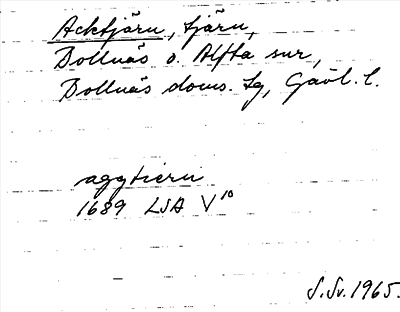 Acktjärn, tjärn,
Bollnäs o. Alfta snr,
Bollnäs doms. hg, Gävl. l.
aggtiern
1689 LSA V¹⁰
S.Sv. 1965.